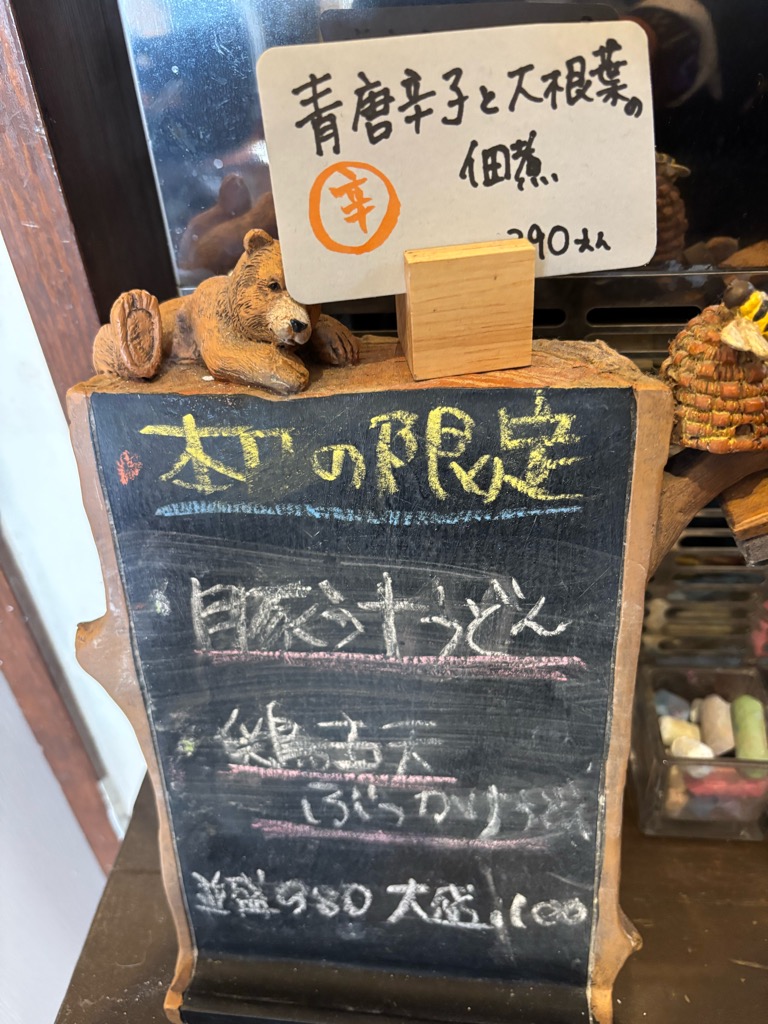 青唐辛子と大根葉の
佃煮
辛
390
本日の限定
豚汁うどん
鶏天
ぶっかけうどん
並盛980 大盛1,100